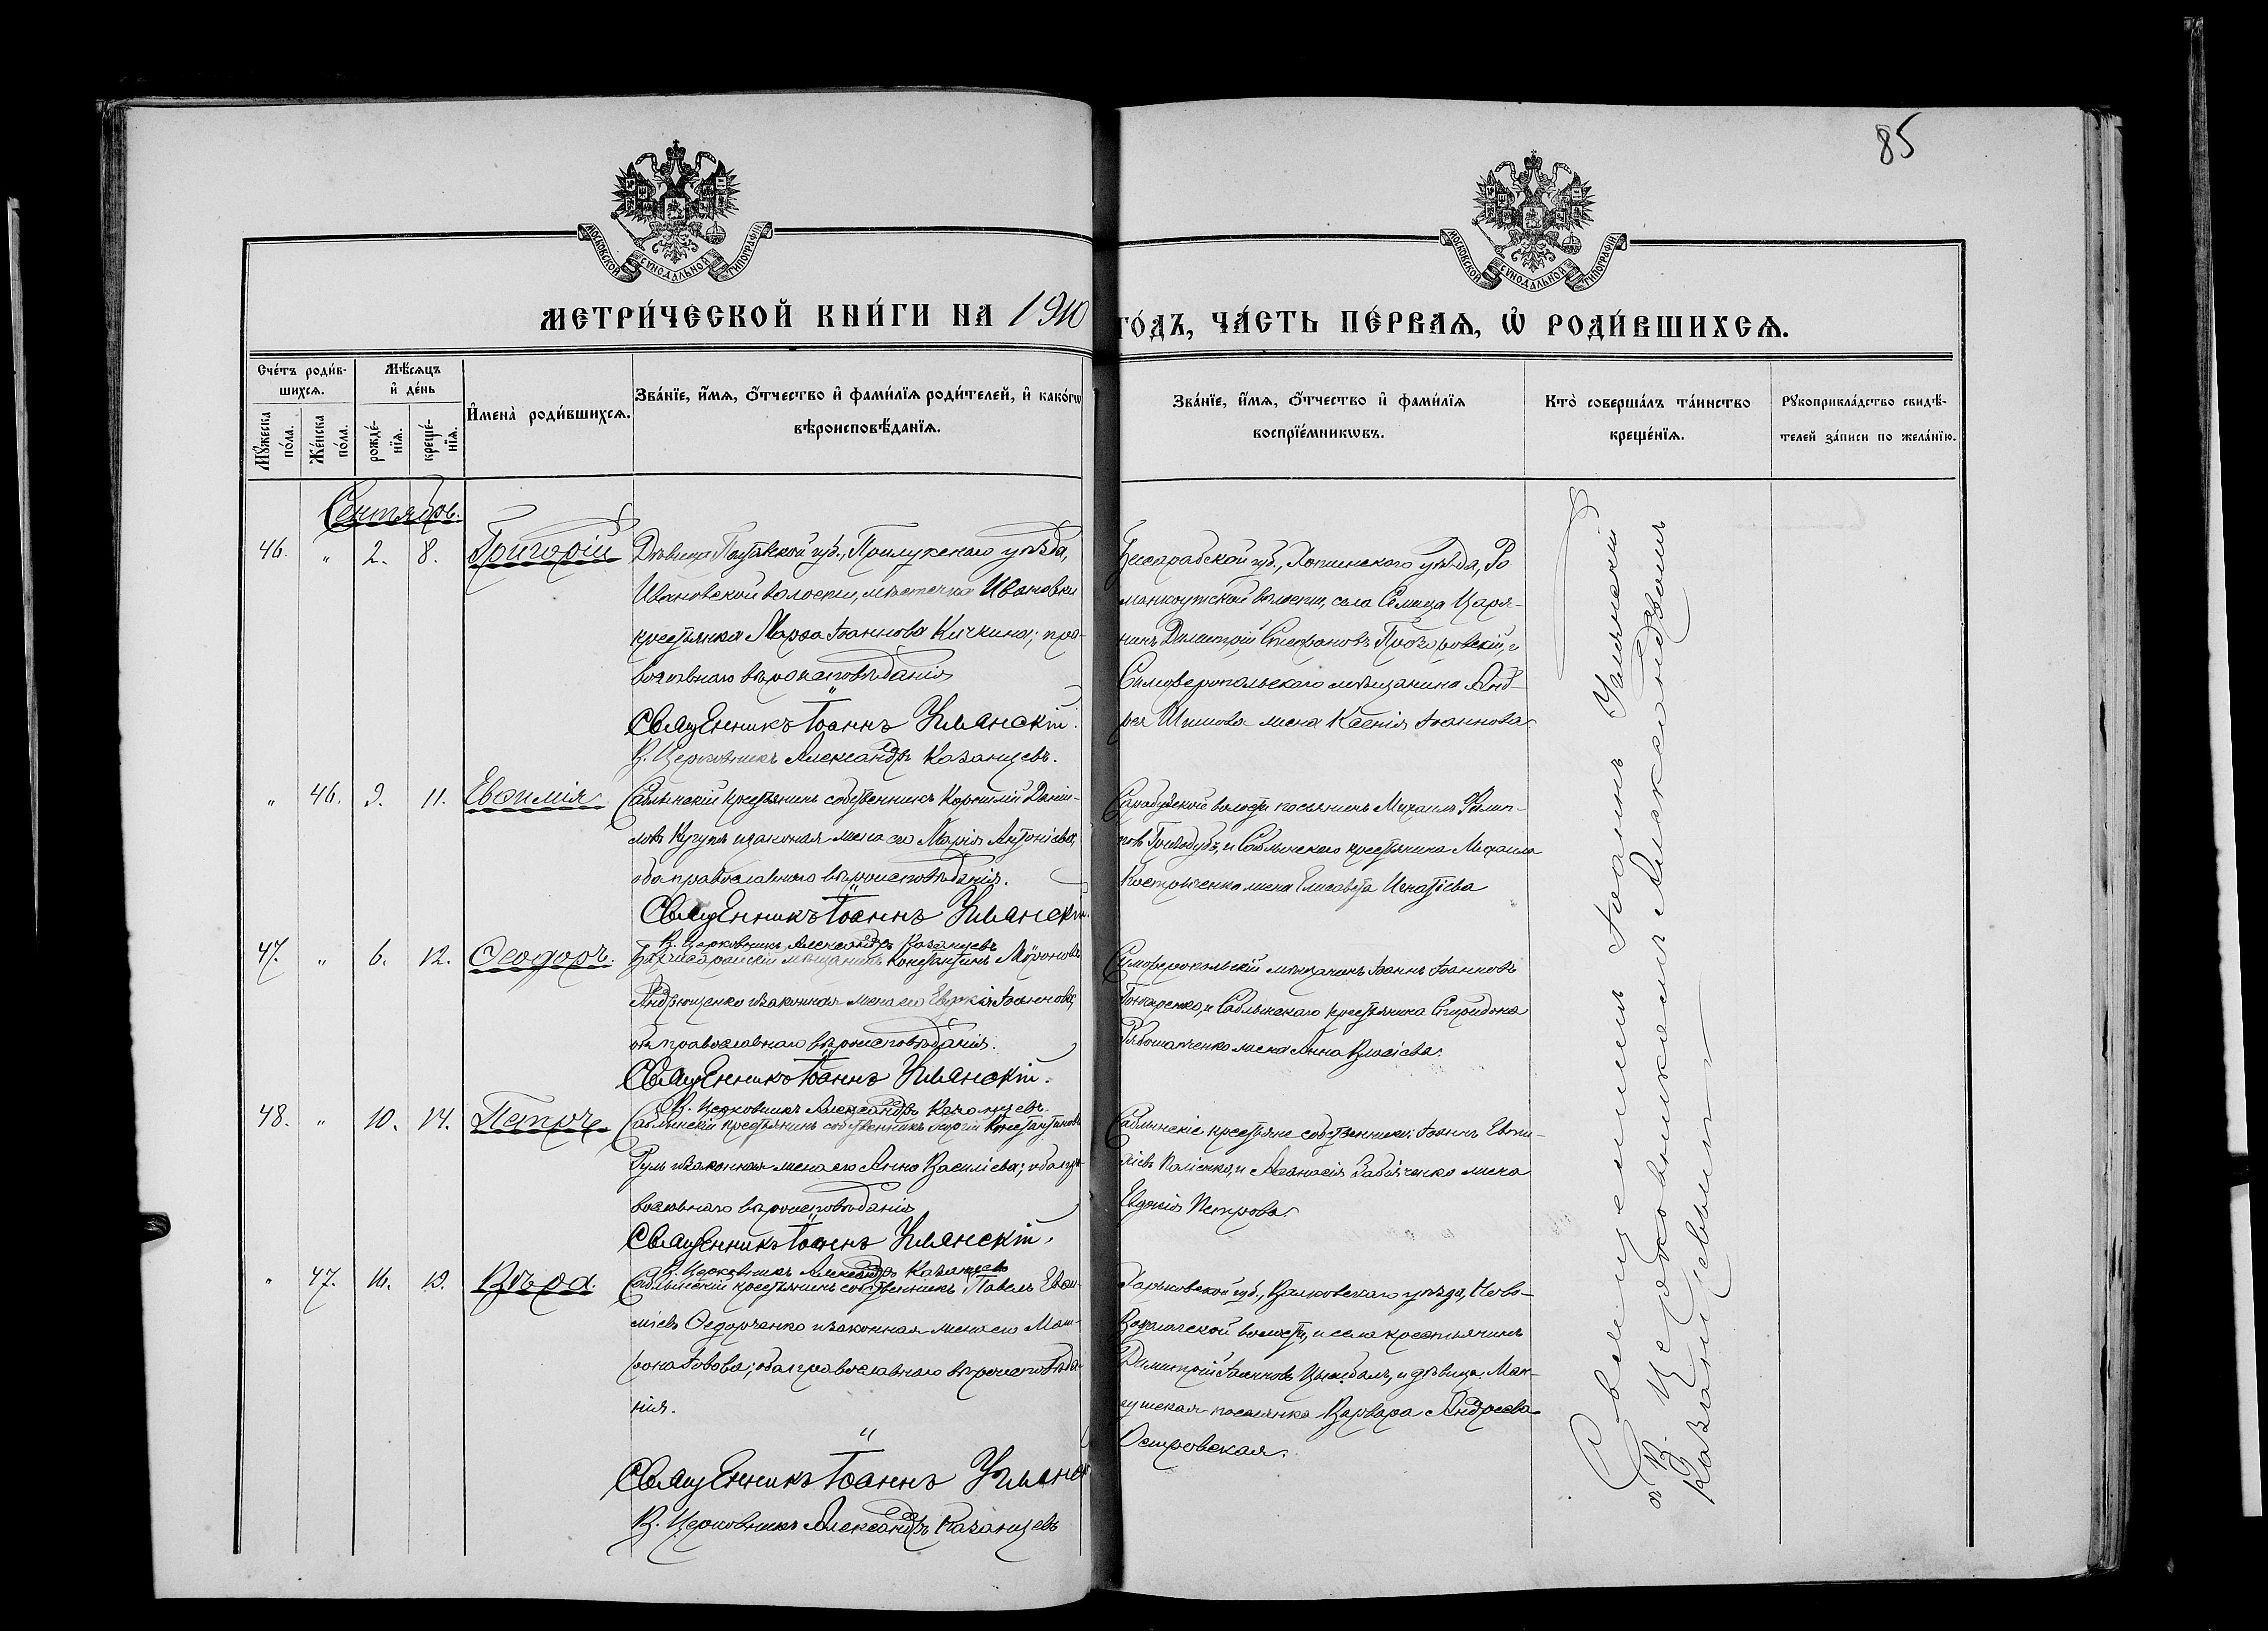 85
МОСКОВСКОЙ СѴНОДАЛЬНОЙ ТИПОГРАФІИ
МОСКОВСКОЙ СѴНОДАЛЬНОЙ ТИПОГРАФІИ
МЕТРИ́ЧЕСКОЙ КНИ́ГИ НА 1910
ГО́ДЪ, ЧА́СТЬ ПЕ́РВАѦ, Ѡ҆ РОДИ́ВШИХСѦ.
Сче́тъ роди́в-
шихсѧ.
Мꙋ́жеска по́ла.
Же́нска по́ла.
Мѣ́сѧцъ
и҆ де́нь
рожде́-
нїѧ.
креще́-
нїѧ.
И҆мена̀ роди́вшихсѧ.
Зва́нїе, и҆́мѧ, ѻ҆́тчество и҆ фами́лїѧ роди́телей, и҆ како́гѡ
вѣроисповѣ́данїѧ.
Зва́нїе, и҆́мѧ, ѻ҆́тчество и҆ фами́лїѧ
воспрїе́мникѡвъ.
Кто̀ соверша́лъ та́инство
креще́нїѧ.
Рꙋкоприкла́дство свидѣ́-
телей за́писи по жела́нїю.
Сентябрь.
46. " 2. 8. Григорій
Дѣвица Полтавской губ., Прилукскаго уѣзда,
Ивановской волости, мѣстечка Ивановки
крестьянка Марѳа Іоаннова Кичкина; пра-
вославнаго вѣроисповѣданія
Священникъ Іоаннъ Уманскій.
В. Церковникъ Александръ Казанцевъ.
Бессарабской губ., Хотинского уѣзда, Ро
манкоутской волости, села Селища Царя-
нинъ Димитрій Стефановъ Прозоровскій, и
Симферопольскаго мѣщанина Анд-
рея Шишова жена Ксенія Іоаннова
" 46. 9. 11. Евѳимія
Саблынскій крестьянинъ собственникъ Корнилій Даніи-
ловъ Кугутъ и законная жена его Марія Антоніева;
оба православнаго вѣроисповѣданія.
Священникъ Іоаннъ Уманскій.
В. Церковникъ Александръ Казанцевъ
волости поселянинъ Михаилъ Филип-
повъ и Саблынскаго крестьянина Михаила
жена Елисавета Игнатіева
47. " 6. 12. Ѳеодоръ.
Бахчисарайскій мѣщанинъ Константинъ Мѵроновъ
Андрющенко и законная жена его Евдокія Іоаннова;
оба православнаго вѣроисповѣданія.
Священникъ Іоаннъ Уманскій.
В. Церковникъ Александръ Казанцевъ.
Симферопольскій мѣщанинъ Іоаннъ Іоанновъ
Гончаренко, и Саблынскаго крестьянина Спиридона
Рябошапченко жена Анна Власіева.
48. " 10. 14. Петръ
Саблынскій крестьянинъ собственникъ Георгій Константиновъ
Гуль и законная жена его Анна Василіева; оба пра-
вославнаго вѣроисповѣданія
Священникъ Іоаннъ Уманскій.
В. Церковникъ Александръ Казанцевъ
Саблынскіе крестьяне собственники: Іоаннъ Евѳи-
міевъ и Аѳанасія жена
Евдокія Петрова.
" 47. 16. 19. Вѣра.
Саблынскій крестьянинъ собственникъ Павелъ Евѳи-
міевъ Ѳедорченко и законная жена его Мат-
рона Іовова; оба православнаго вѣроисповѣда-
нія.
Священникъ Іоаннъ Уманск
В. Церковникъ Александръ Казанцевъ
Харьковской губ., Валковскаго уѣзда, Ново-
Водолажской волости, и села крестьянинъ
Димитрій Іоанновъ Цымбалъ, и дѣвица, Ман-
гушская поселянка Варвара Андреева
Островская.
Священникъ Іоаннъ Уманскій
съ В. Церковникомъ Александромъ
Казанцевымъ